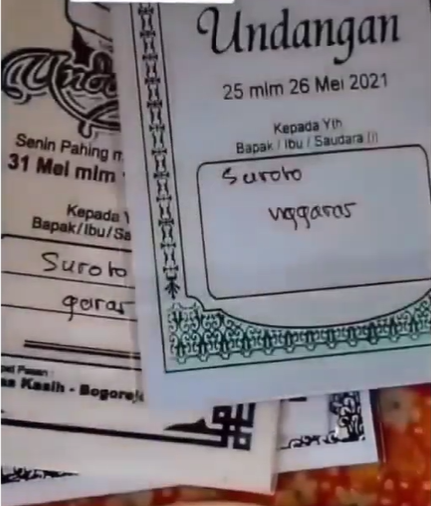 Undangan
25 mlm 26 Mei 2021
Kepada Yth
Bapak / Ibu / Saudara /i
Suroto
nggaras
Senin Pahing
31 Mei mlm
Kepada
Bapak/Ibu/Sa
Suroto
garas
Kasih - Bogorej